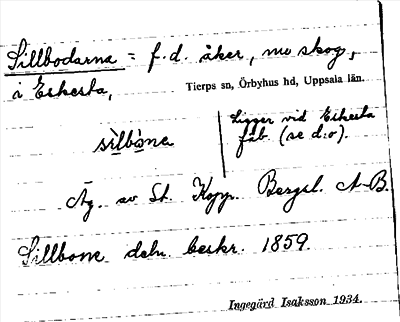 Sillbodarna = f.d. åker, nu skog,
å Eskesta,
Tierps sn, Örbyhus hd, Uppsala län.
Ligger vid Eskesta
fäb. (se d:o).
sìlbòna
Äg. av St. Kopp. Bergsl. A-B.
Sillbone deln. beskr. 1859.
Ingegärd Isaksson 1934.